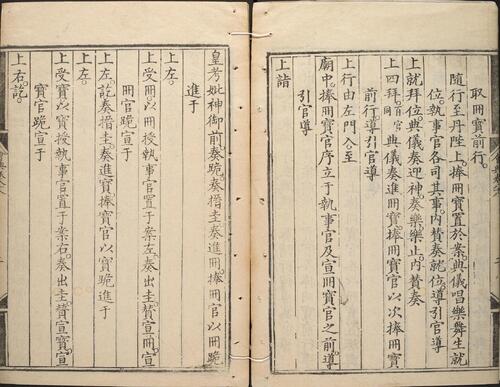 取冊寶前行。
隨行至丹陛上。捧冊寶置於案。典儀唱樂舞生就
位。執事官各司其事。內贊奏就位。導引官導
上就拜位。典儀奏迎神。奏樂。樂止。內贊奏
上四拜。百官同。典儀奏進冊寶。捧冊寶官以次捧冊寶
前行。導引官導
上行由左門入至
廟中。捧冊寶官序立于執事官及宣冊寶官之前。導
引官導
上詣
皇考妣神御前。奏跪。奏搢圭。奏進冊。捧冊官以冊跪
進于
上左。
上受冊。以冊授執事官置于案左。奏出圭。贊宣冊。宣
冊官跪宣于
上左。訖。奏搢圭。奏進寶。捧寶官以寶跪進于
上左。
上受寶。以寶授執事官置于案右。奏出圭。贊宣寶。宣
寶官跪宣于
上右。訖。